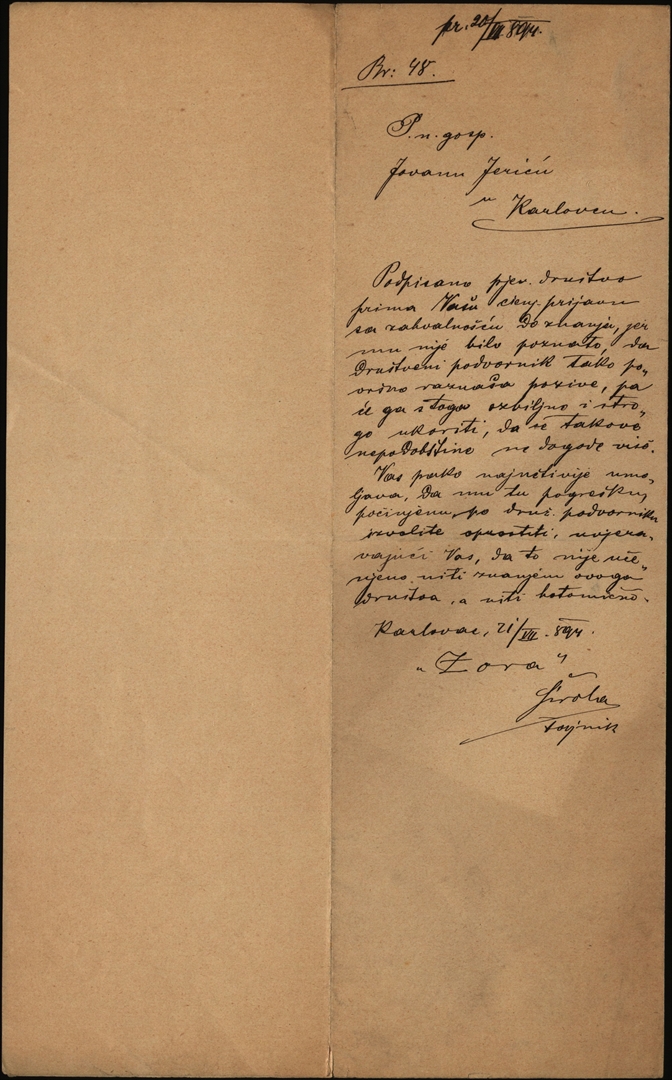 pr. 20/VII 894.
Br: 48.
P. n. gosp.
Jovanu Jeriću
u
Karlovcu.
Podpisano pjev. društvo
prima Vašu cienj. prijavu
sa zahvalnošću do znanja, jer
mu nije bilo poznato da
društveni podvornik tako po-
vršno raznaša pozive, pa
će ga stoga ozbiljno i stro-
go ukoriti, da se takove
nepodobštine ne dogode više.
Vas pako najučtivije umo-
ljava, da mu tu pogrešku,
počinjenu po druš. podvorniku
izvolite oprostiti, uvjera-
vajući Vas, da to nije uči-
njeno niti znanjem ovoga
društva, a niti hotomično.
Karlovac, 21/VII. 894.
"Zora"
Širola
tajnik